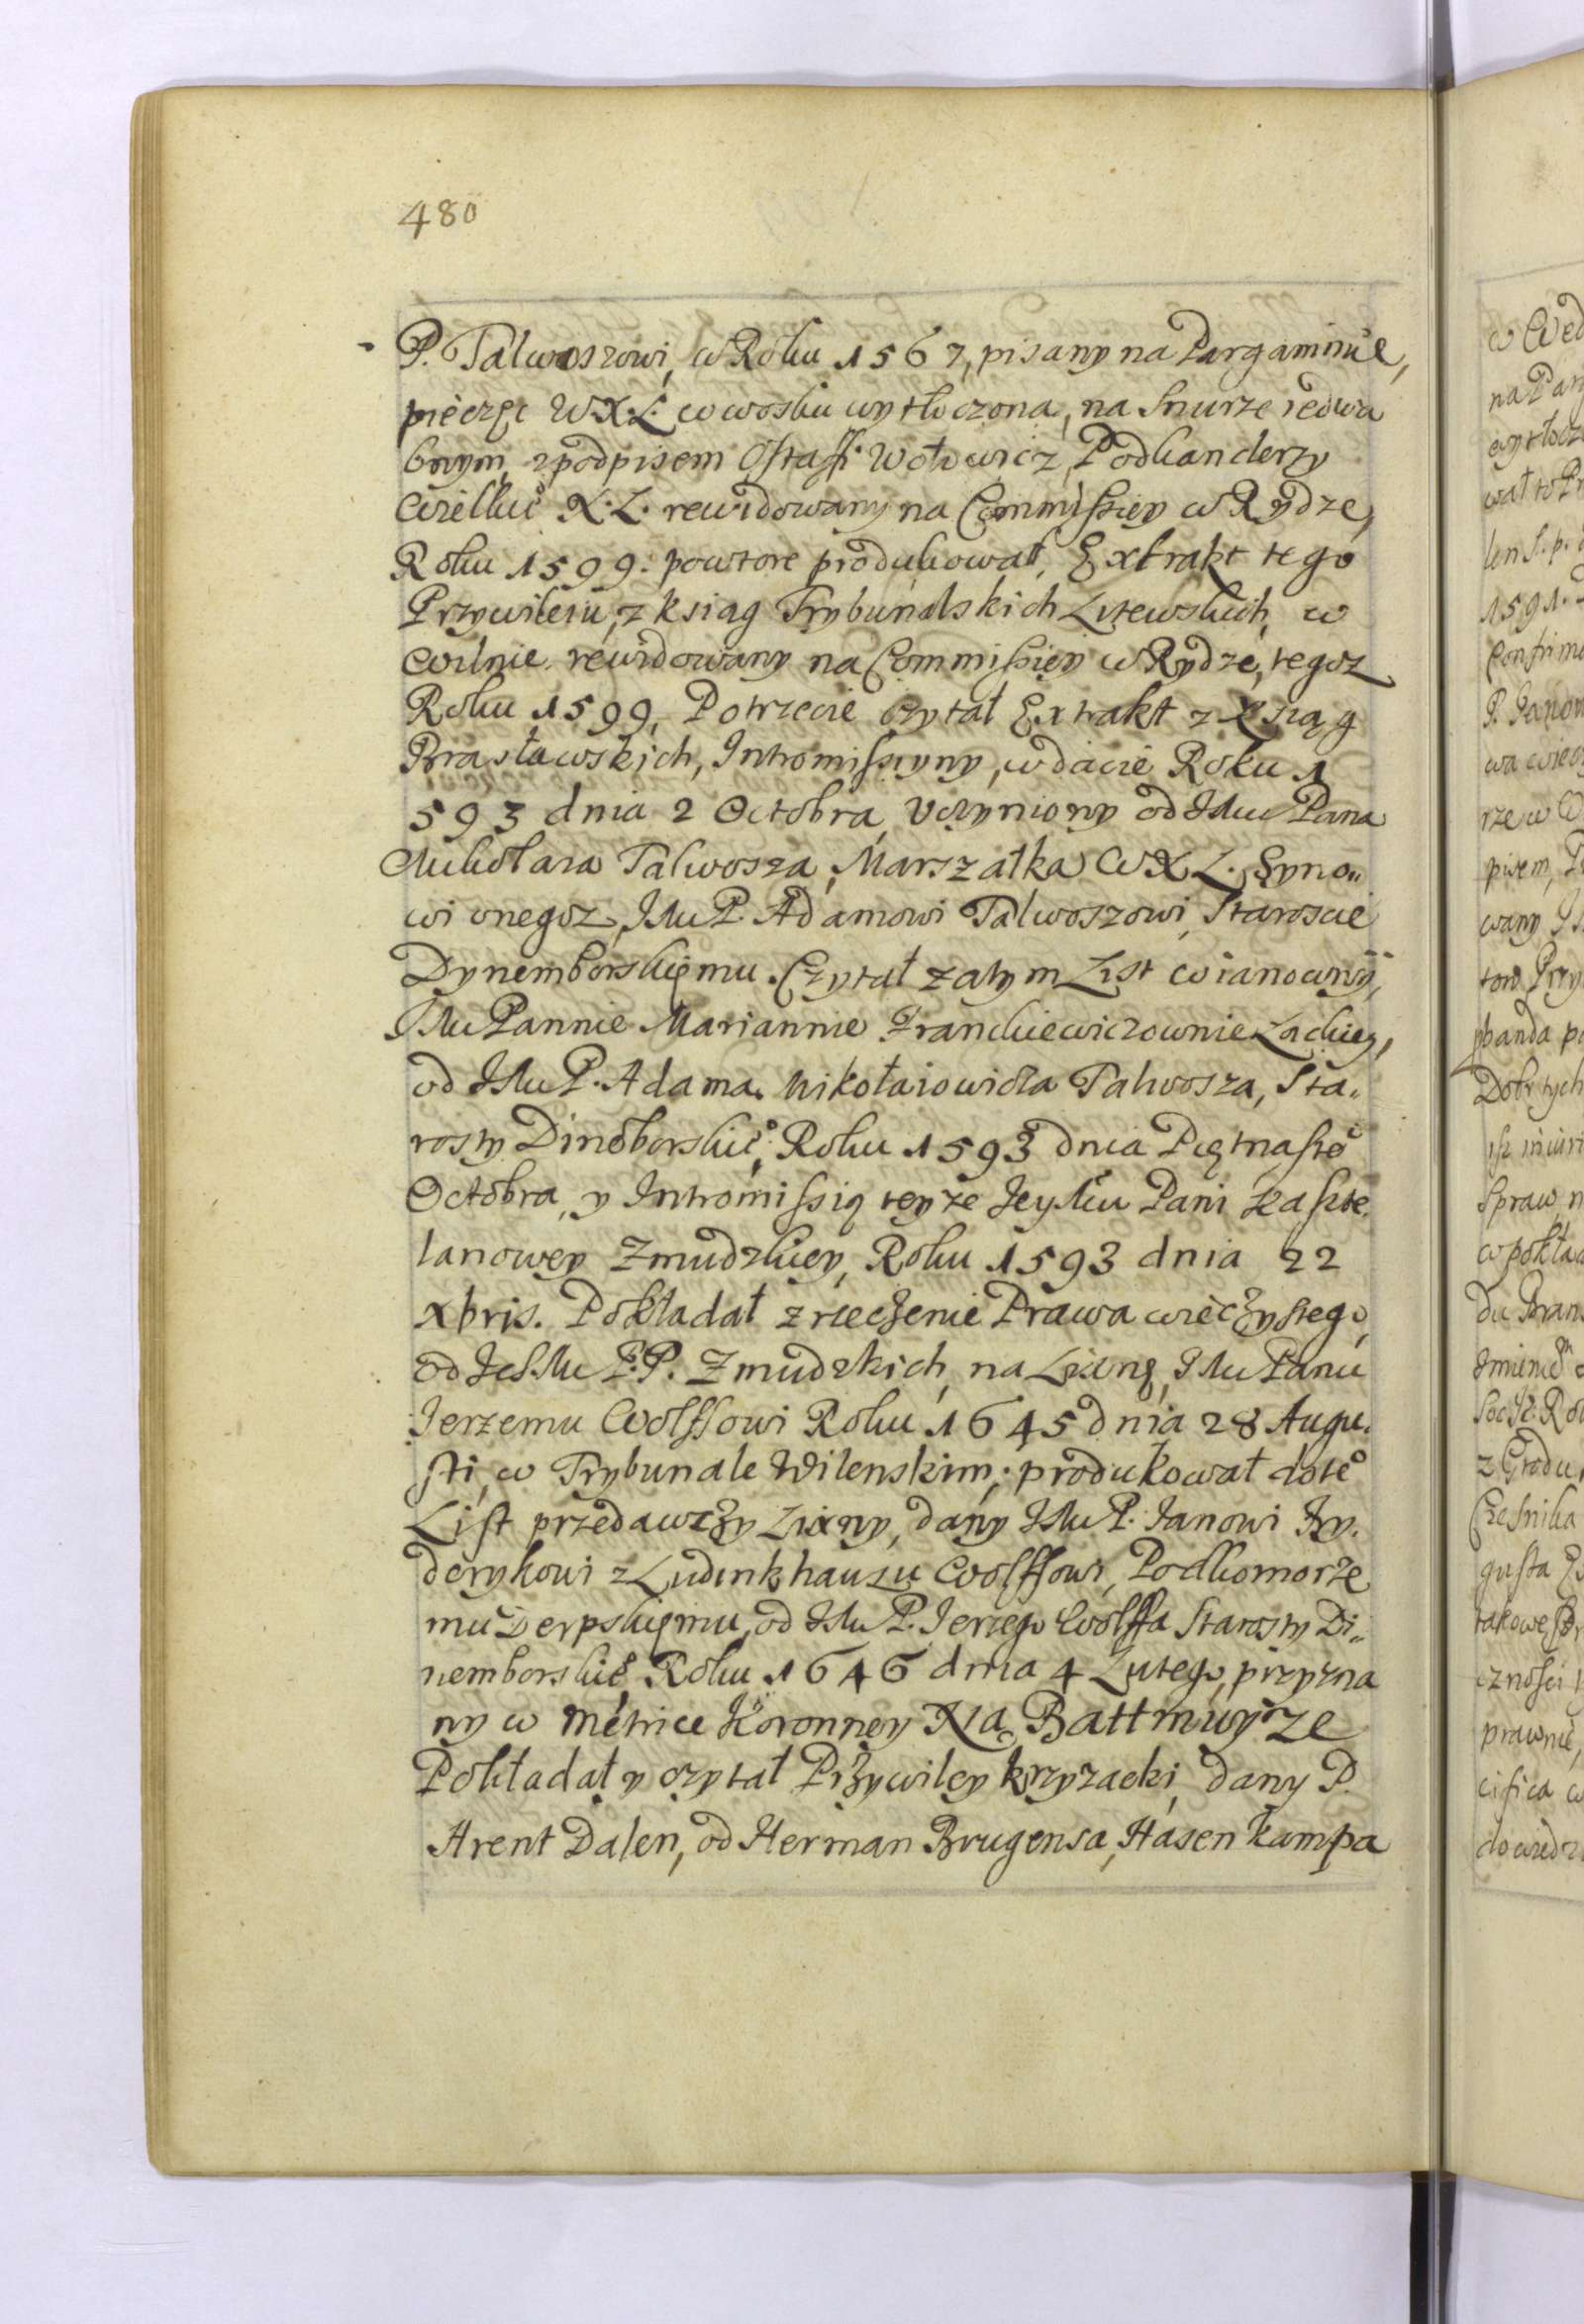 480
P. Talwoszowi, w Roku 1567, pisany na Pargaminie,
pieczęc W.X.L. w wosku wytłoczona, na snurze iedwa
bnym, z podpisem Ostaffi Wołowicz, Podkanclerzy
Wielkie° X.L. rewidowany na Commissiey w Rydze,
Roku 1599. powtore produkował, Extrakt tego
Przywileiu, z ksiąg Trybunalskich Litewskich, w
Wilnie rewidowany na Commissiey w Rydze, tegoz
Roku 1599, Potrzecie czytał Extrakt z Xsiąg
Brasławskich, Intromissyiny, w dacie Roku 1
593 dnia 2 Octobra, Uczyniony od JMci Pana
Mikołaia Talwosza, Marszałka W X L. Syno„
wi onegoz, JMu P. Adamowi Talwoszowi, Staroscie
Dynemborskiemu. Czytał zatym List wianowny,
JMu Pannie Mariannie Franckiewiczownie Lackiey,
od JMu P. Adama Mikołaiowicza Talwosza, Sta„
rosty Dinoborskie°, Roku 1593 dnia Piętnaste°
Octobra, y Intromissią teyze JeyMu Pani Kaszte.
lanowey Zmudzkiey, Roku 1593 dnia 22
xbris. Pokładał zrzeczenie Prawa wieczystego,
od IchMu P.P. Zmudzkich, na Lixnę, JMu Panu
Jerzemu Wolffowi Roku 1645 dnia 28 Augu.
sti, w Trybunale Wilenskim; produkował dote°
List przedawczy Lixny, dany JMu P. Janowi Fry.
derykowi z Ludinkhauzu Wolffowi, Podkomorze
mu Derpskiemu, od JMu P. Jerzego Wolffa Starosty Di„
nemborskie° Roku 1646 dnia 4 Lutego, przyzna
ny w Metrice Koronney Na Battmuyze
Pokładał y czytał Przywiley krzyzacki, dany P.
Arent Dalen, od Herman Brugensa, Hasen kampa